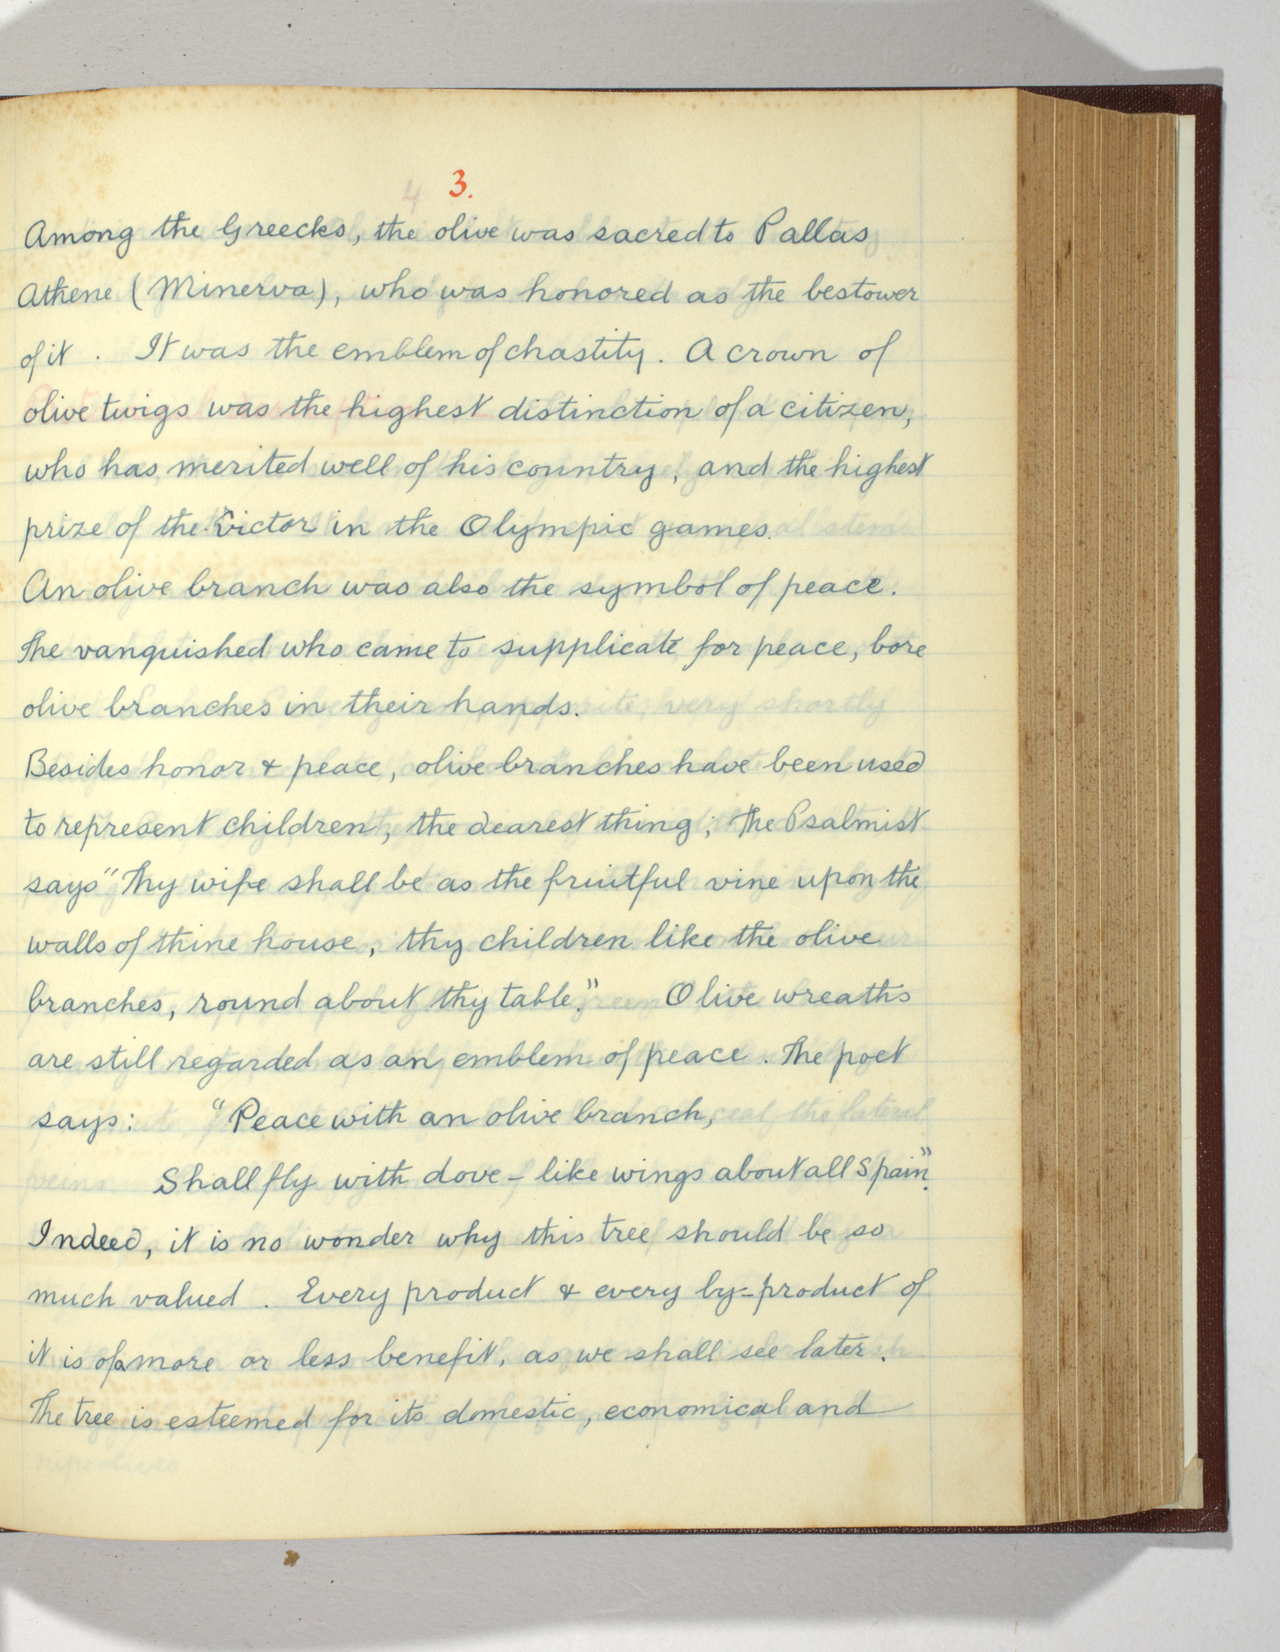 3.
Among the Greecks, the olive was sacred to Pallas
Athene (Minerva), who was honored as the bestower
of it. It was the emblem of chastity. A crown of
olive twigs was the highest distinction of a citizen,
who has merited well of his country, and the highest
prize of the victor in the Olympic games.
An olive branch was also the symbol of peace.
The vanquished who came to supplicate for peace, bore
olive branches in their hands.
Besides honor & peace, olive branches have been used
to represent children, the dearest thing; The Psalmist
says "Thy wife shall be as the fruitful vine upon the
walls of thine house, thy children like the olive
branches, round about thy table." Olive wreaths
are still regarded as an emblem of peace. The poet
says: "Peace with an olive branch,
Shall fly with dove-like wings about all Spain".
Indeed, it is no wonder why this tree should be so
much valued. Every product & every by-product of
it is of more or less benefit, as we shall see later.
The tree is esteemed for its domestic, economical and